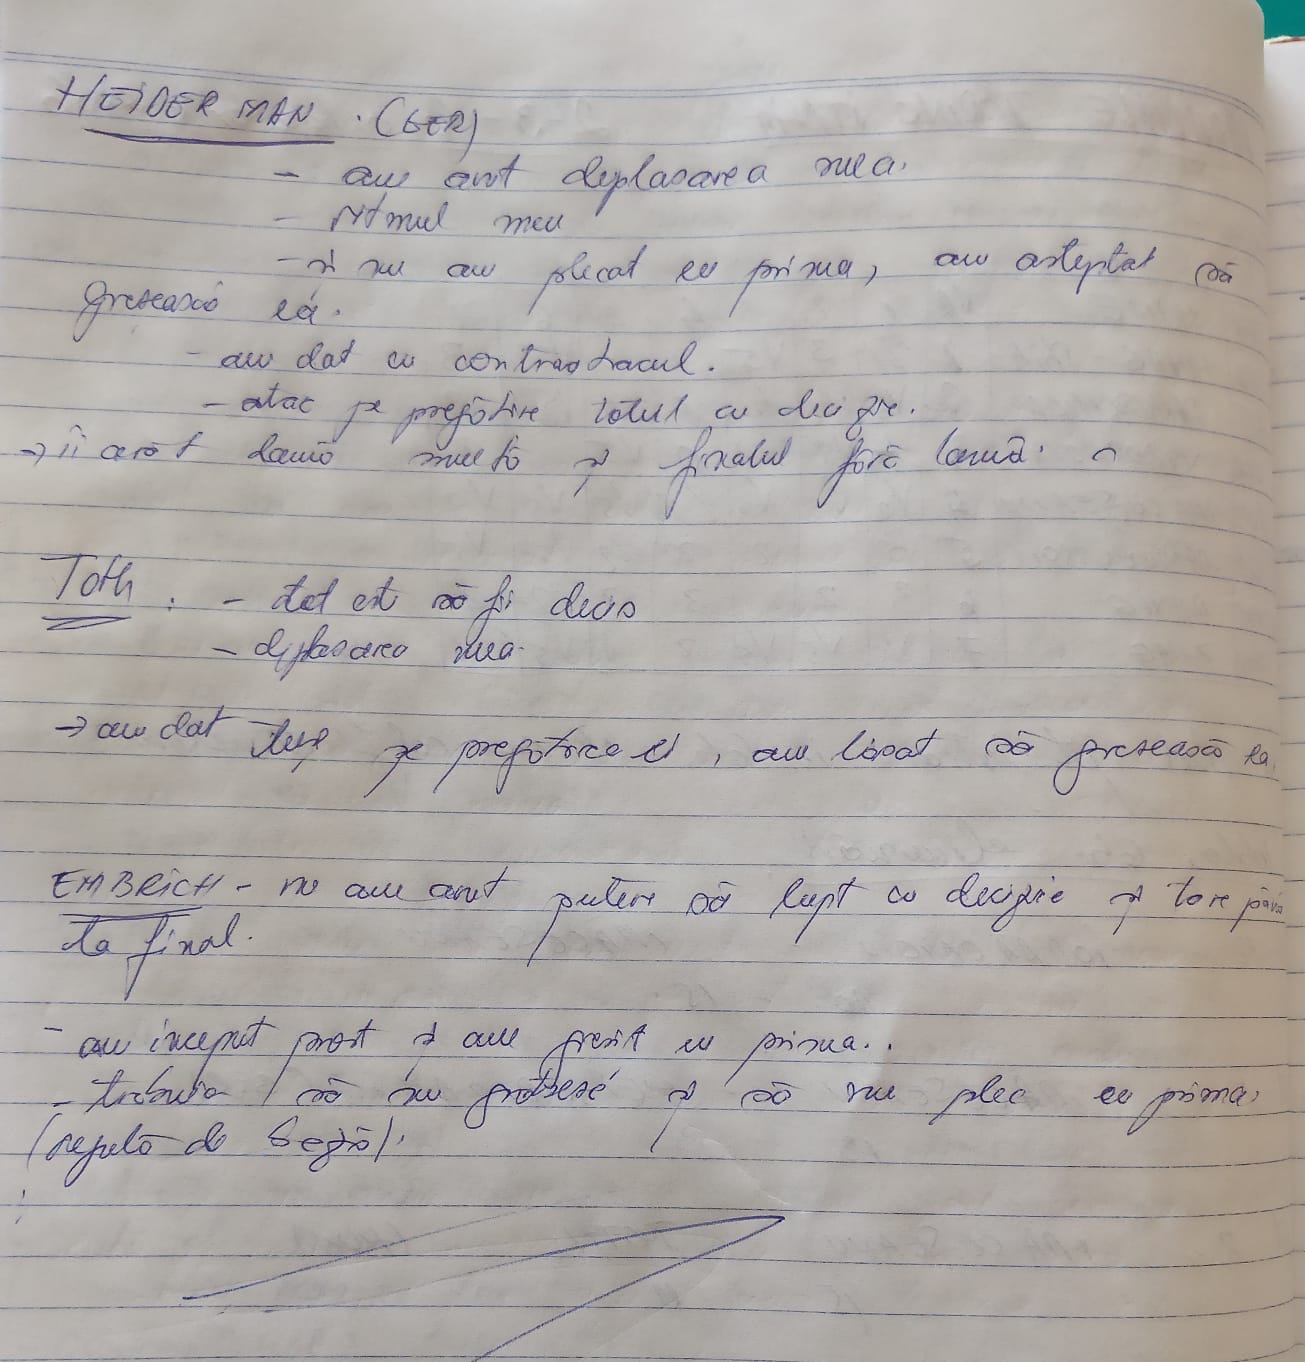 HEIDERMAN. (GER)
- am avut deplasarea mea.
- Ritmul meu
- și nu am plecat eu prima, am asteptat să
greșească ea.
- am dat cu contraatacul.
- atac pe pregătire totul cu decizie.
→ îi arăt lamă multă și finalul fără lamă.
Toth: - tot est să fii decis
- deplasarea mea.
→ am dat tuș pe pregătirea ei, am lăsat să greșească ea
EMBRICH - nu am avut putere să lupt cu decizie și tare până
la final.
- am inceput prost și am greșit eu prima..
- trebuia să nu grăbesc și să nu plec eu prima.
(regulă de)